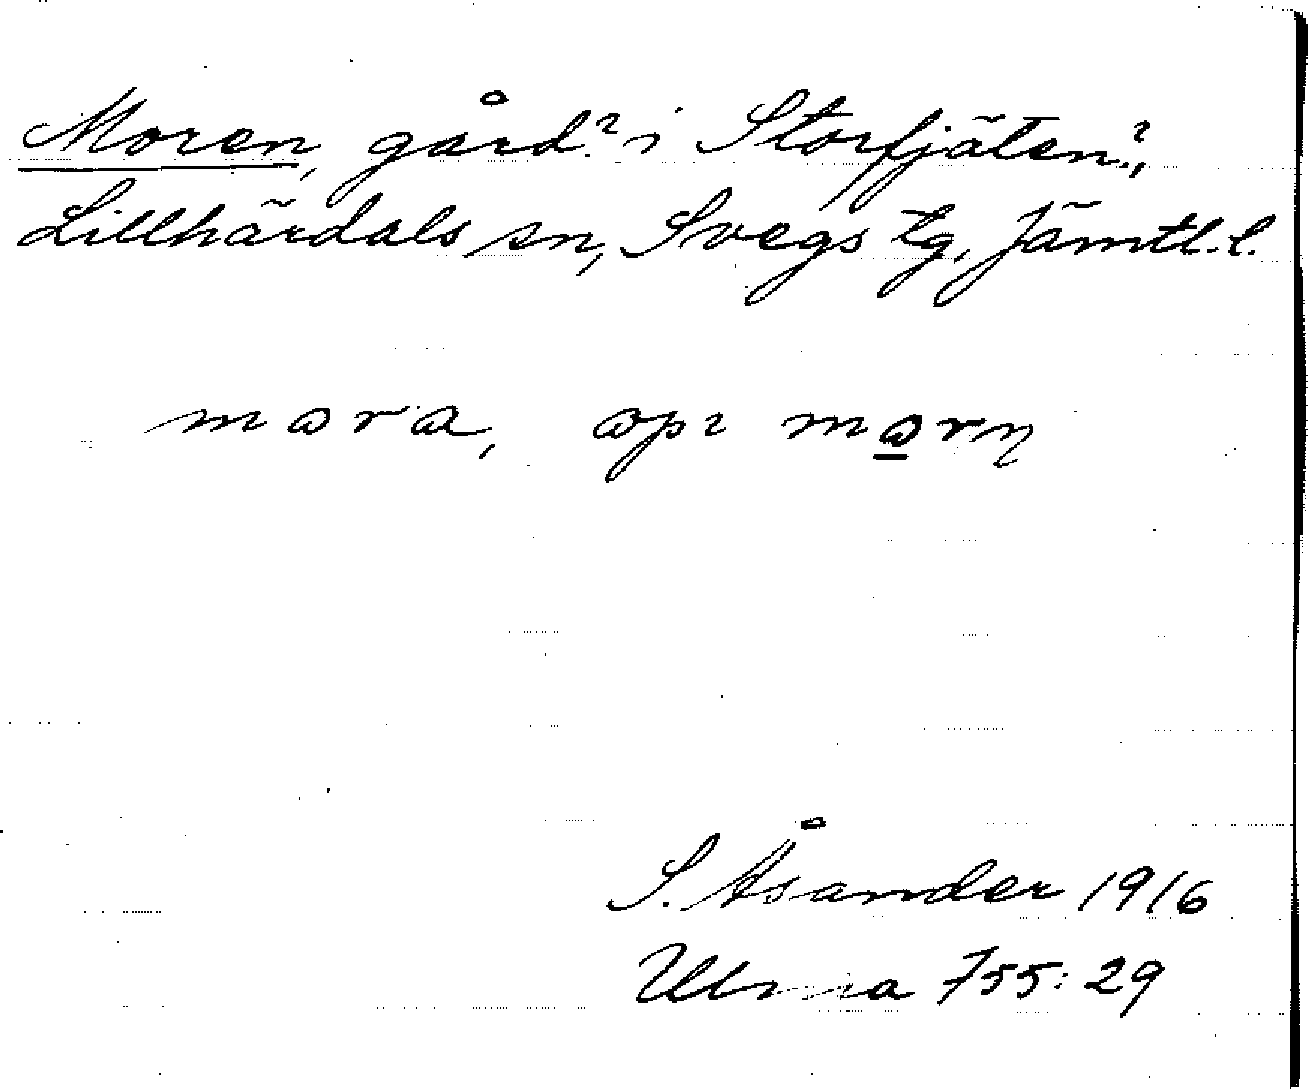 Moren, gård? i Storfjäten?,
Lillhärdals sn, Svegs tg, Jämtl. l.
mɷra, ɷpɿ mɷrṇ
S. Åsander 1916
Ulma 755:29